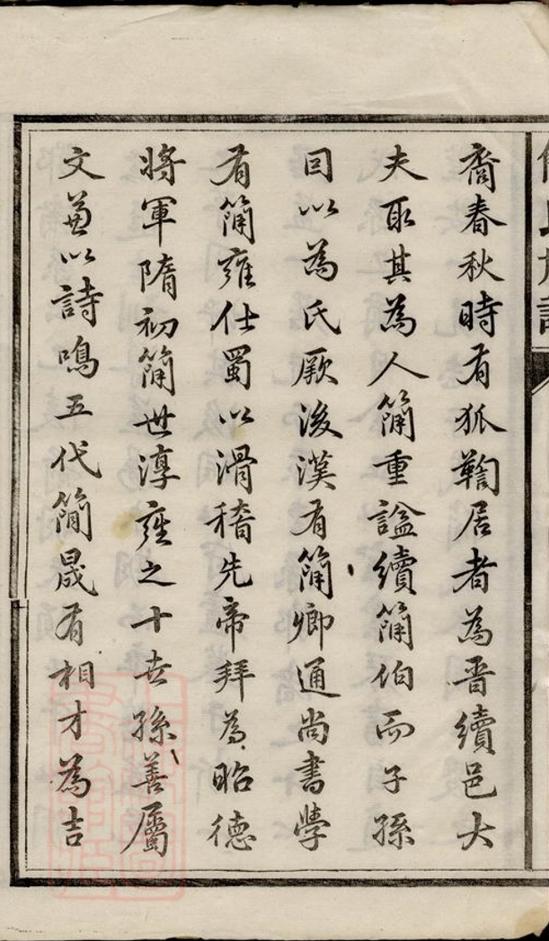 裔春秋時有狐鞫居者為晉續邑大
夫取其為人簡重諡續簡伯而子孫
因以為氏厥後漢有簡卿通尚書學
有簡雍仕蜀以滑稽先帝拜為昭德
將軍隋初簡世淳雍之十世孫善屬
文兼以詩鳴五代簡晟有相才為吉